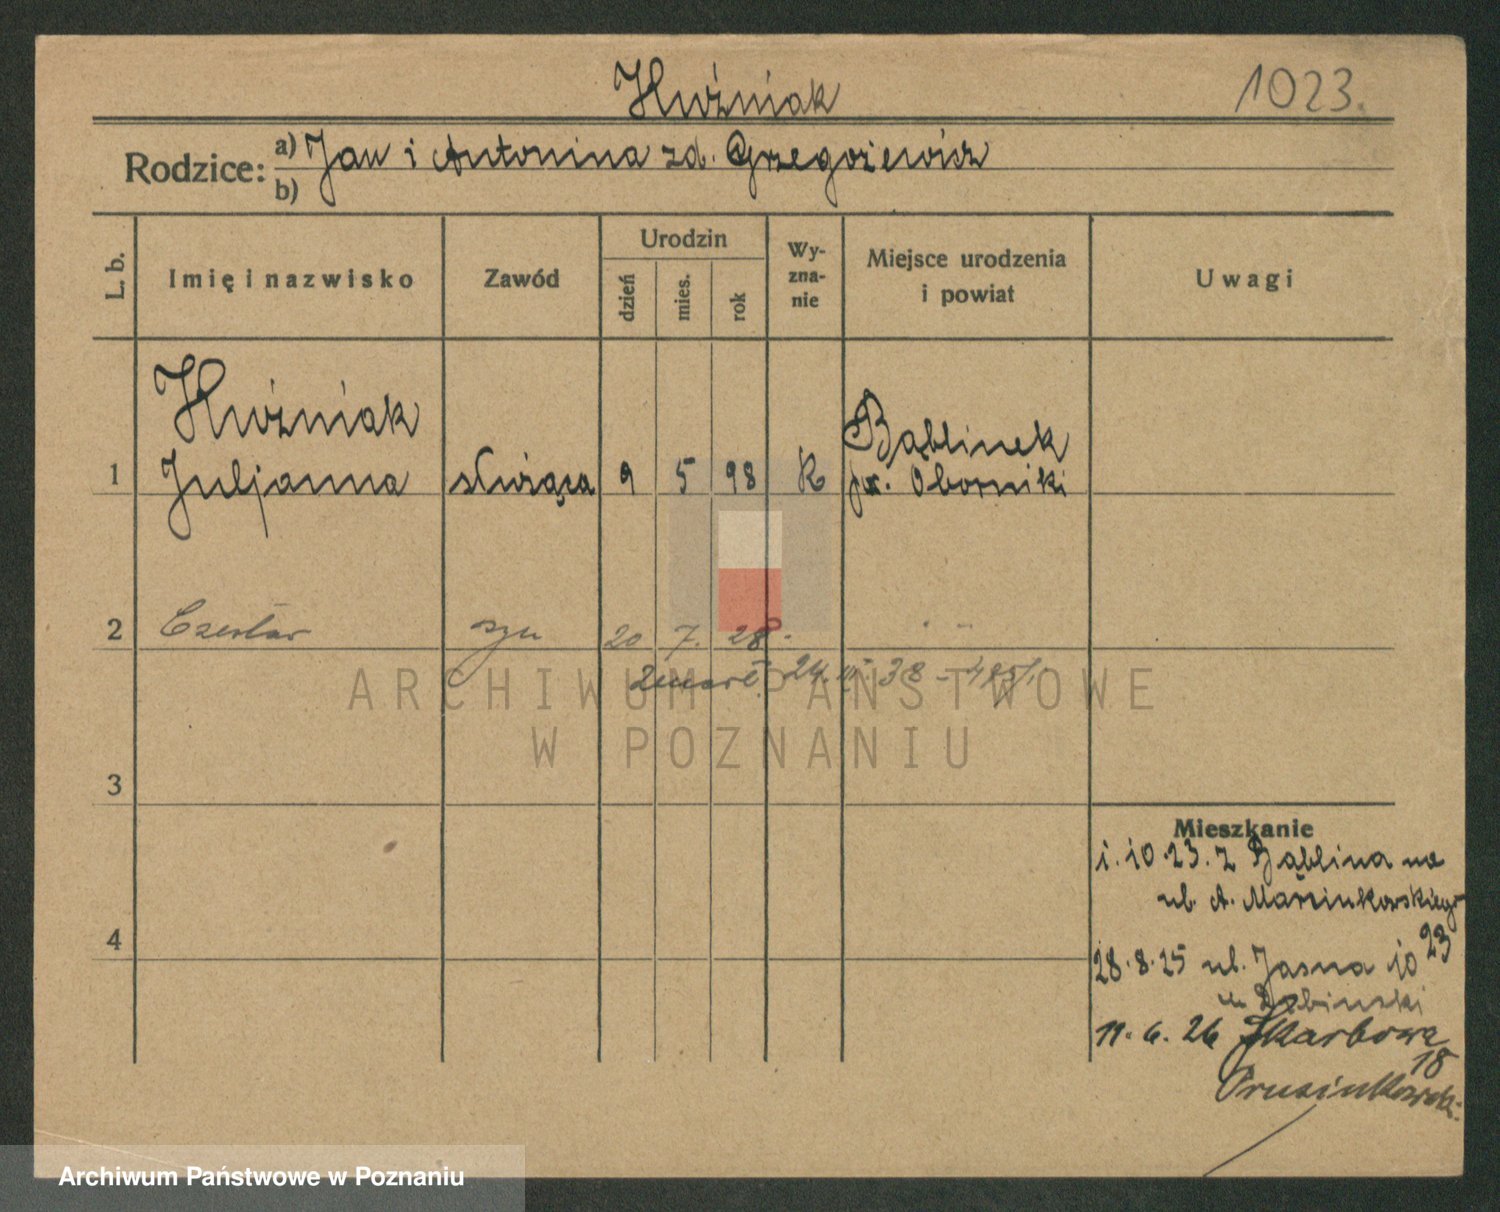 Hwźniak
1023.
Rodzice: a) Jan i Antonina zd. Grzegożewicz
b)
L. b.
Imię i nazwisko
Zawód
Urodzin
dzień
mies.
rok
Wy-
zna-
nie
Miejsce urodzenia
i powiat
Uwagi
Hwźniak
Bąblinek
1 Juljanna służąca 9 5 98 K pw. Oborniki
2 Czesław syn 20 7. 28
zmarł 24. III. 38
ARCHIWUM PAŃSTWOWE
W POZNANIU
3
Mieszkanie
1.10.23. z Bąblina na
ul. A. Marcinkowskiego
23
4
28.8.25 ul. Jasna 10
u Dobinski
11.6.26 Skarbowa
18
Archiwum Państwowe w Poznaniu